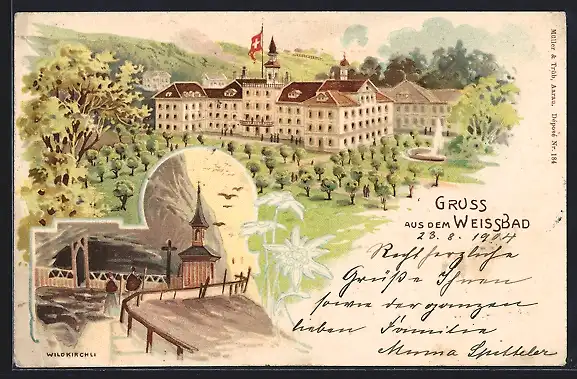 Müller & Trüb, Aarau, Déposé Nr. 184
GRUSS
AUS DEM WEISSBAD
23. 8. 1904
Recht herzliche
Grüße Ihnen
sowie der ganzen
lieben Familie
Spitteler
WILDKIRCHLI